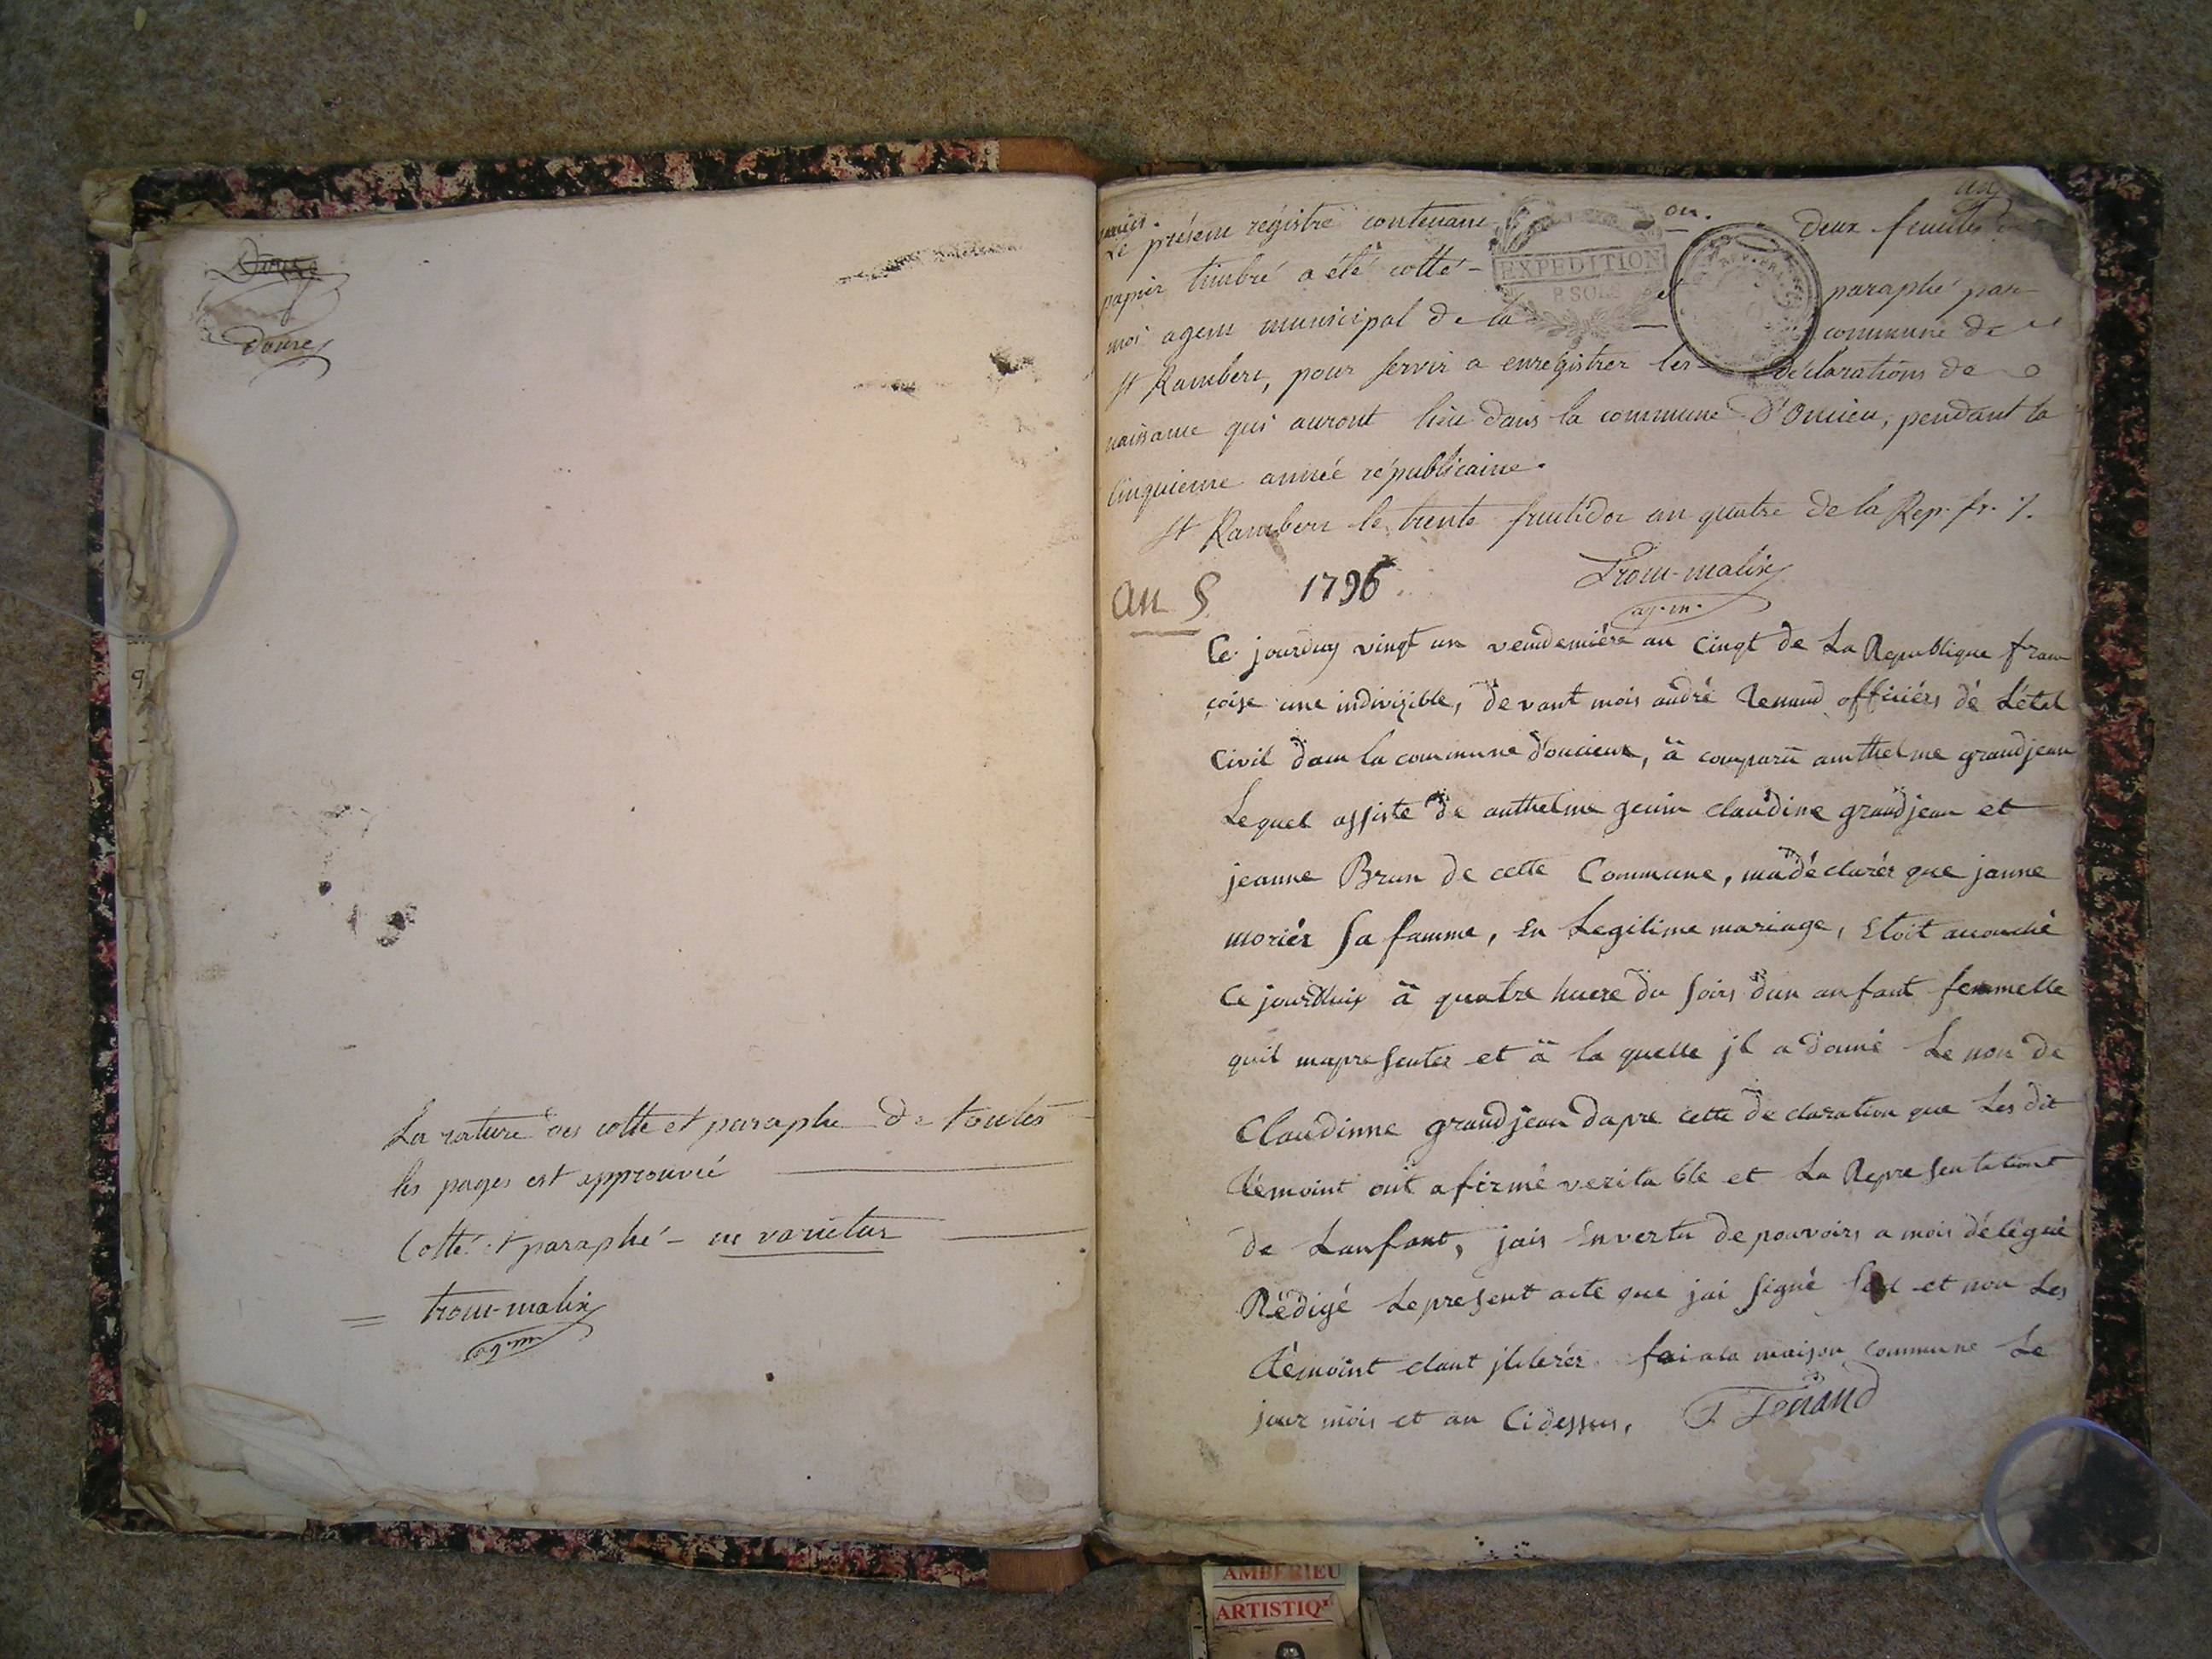 Douze
douze
La rature des cotte et paraphe De toutes
les pages est approuvée
Cotté et paraphé ne varietur
trom-malix
ag. m.
Le présent régistre contenant deux feuilles de
papier timbré a été cotté et paraphé par
EXPEDITION
moi agent municipal de la commune de
St Rambert, pour servir a enregistrer les déclarations de
naissance qui auront lieu dans la commune d'Oncieu, pendant la
cinquieme année républicaine.
St Rambert le trente fructidor an quatre de la Rep. fr. %.
Trom-malix
ag. m.
an 5 1796
Ce jourduy vingt un vendemiére an Cinqt de La Republique fran
çoise une indivizible, devant mois andré Tenand officiérs dé L'étal
Civil dans la commune d'oncieux, ä comparu anthelme grandjean
Lequel assiste de anthelme genin claudine grandjean et
jeanne Brun de cette Commune, ma déclarér que janne
moriér sa famme, En Legitime mariage, Etoit accouché
Ce jourdhuix ä quatre huere du soirs dun anfant femmelle
quil mapresenter et ä la quelle jl a donné Le non de
Claudinne grandjean dapre cette declaration que Les dit
témoint ont afirmé verita ble et La Representationt
de Lanfant, jais En vertu de pouvoirs a mois délégué
Rédigé Le present acte que jai signé seul et non Les
témoint etant jliterér. fai a la maison commune Le
jour mois et an Cidessus, Tenand
AMBERIEU
ARTISTIQ